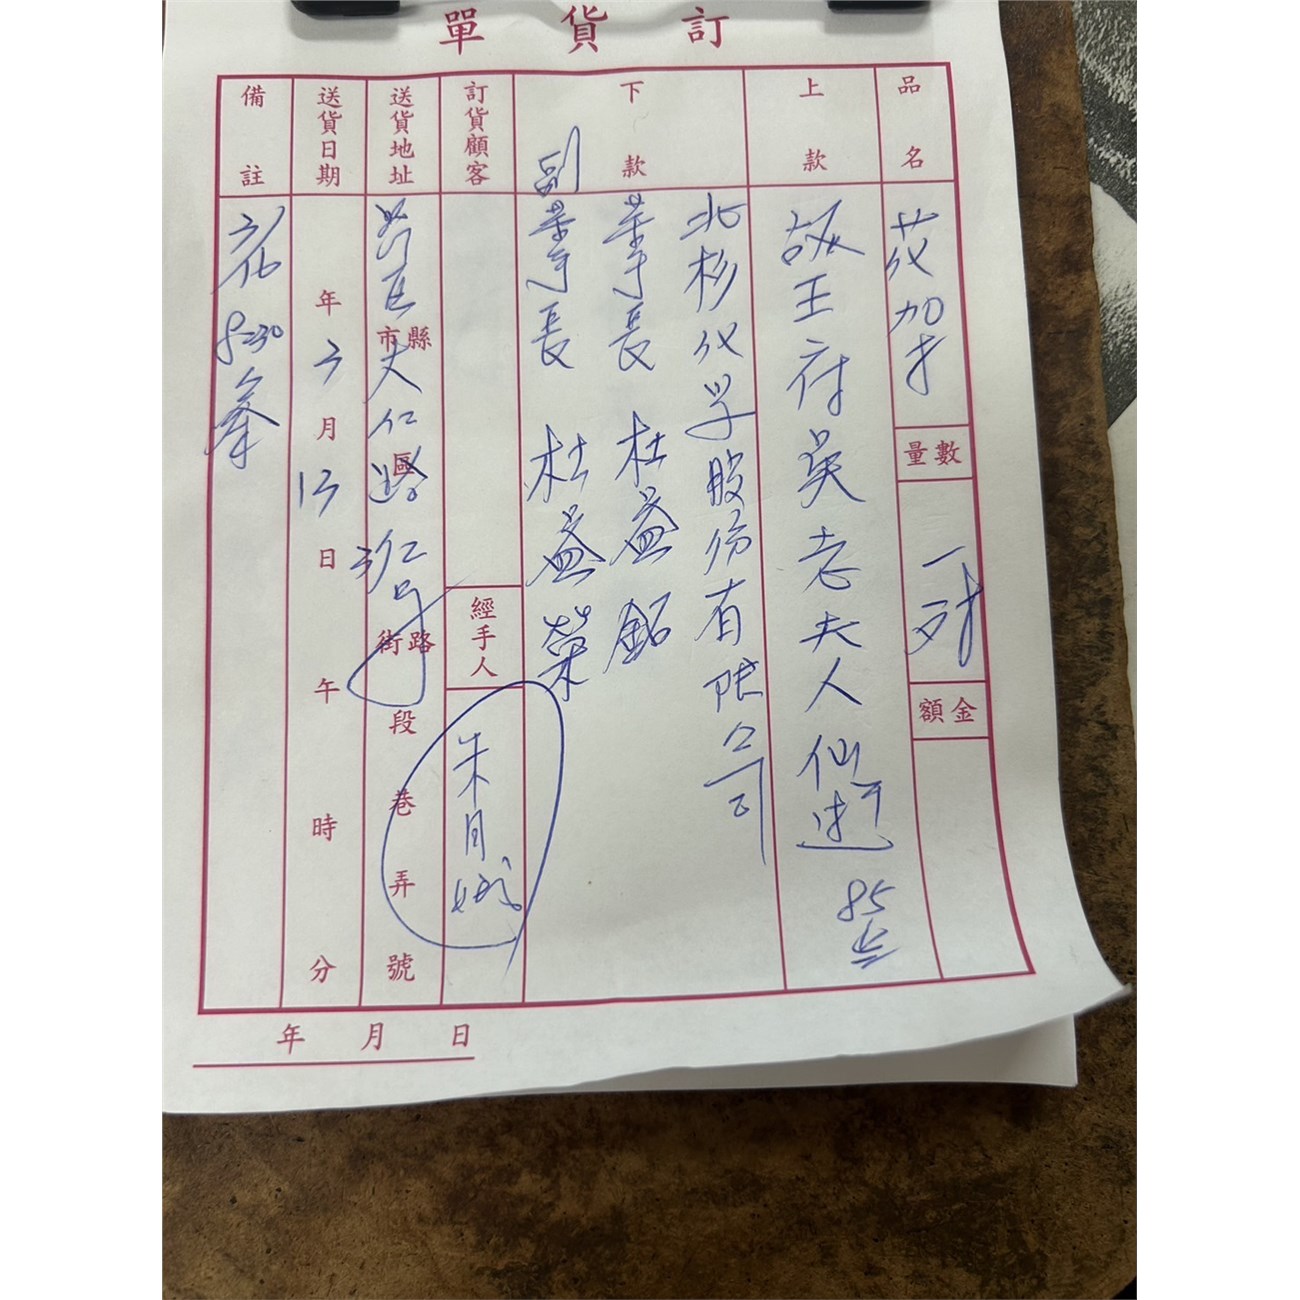 訂貨單
品名
花加才
數量
一对
金額
上款
故王府吳老夫人仙逝
85
下款
北杉化学股份有限公司
董事長 杜益銘
副董事長 杜益榮
訂貨顧客
經手人
朱月娥
送貨地址
市縣
區
街路
段
巷
弄
號
送貨日期
年3月13日午時分
備註
年月日